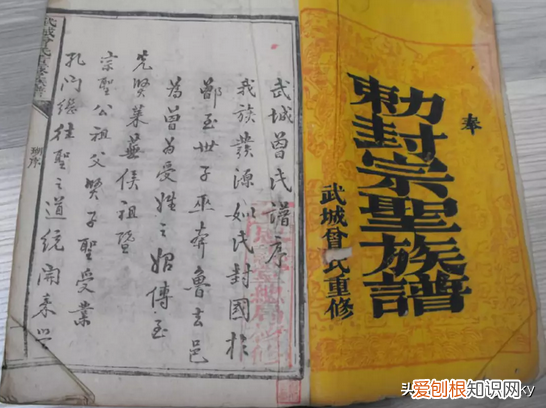 奉
勅封宗聖族譜
武城曾氏重修
武城曾氏譜序
我族發源如氏封國於
鄫至世子巫奔魯去邑
為曾為受姓之始傳至
先賢萊蕪侯祖暨
宗聖公祖父賢子聖受業
孔門繼往聖之道統開來學
头条
爱刨根知识网